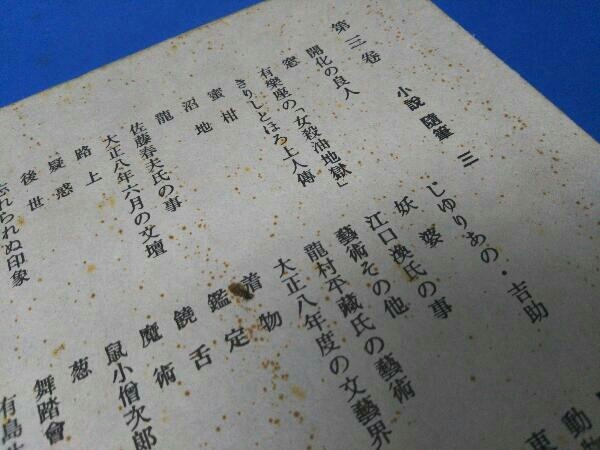 第三卷
小說 隨筆 三
開化の良人
窓
有樂座の「女殺油地獄」
きりしとほろ上人傳
蜜柑
沼地
龍
佐藤春夫氏の事
大正八年六月の文壇
路上
疑惑
後世
忘れられぬ印象
じゆりあの・吉助
妖婆
江口渙氏の事
藝術その他
龍村平藏氏の藝術
大正八年度の文藝界
着物
鑑定
饒舌
魔術
葱
鼠小僧次郎
舞踏會
有島
動物
東